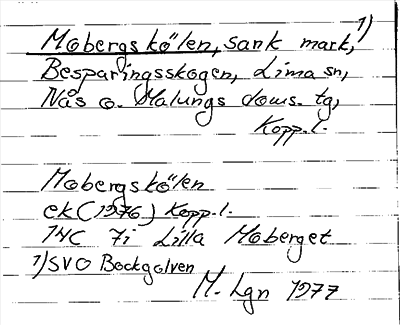 Mobergskölen, sank mark, 1)
Besparingsskogen, Lima sn,
Nås o. Malungs doms. tg,
Kopp. l.
Mobergskölen
ek (1976) Kopp. l.
14C 7i Lilla Moberget
1) SVO Bockgolven
M. Lgn 1977